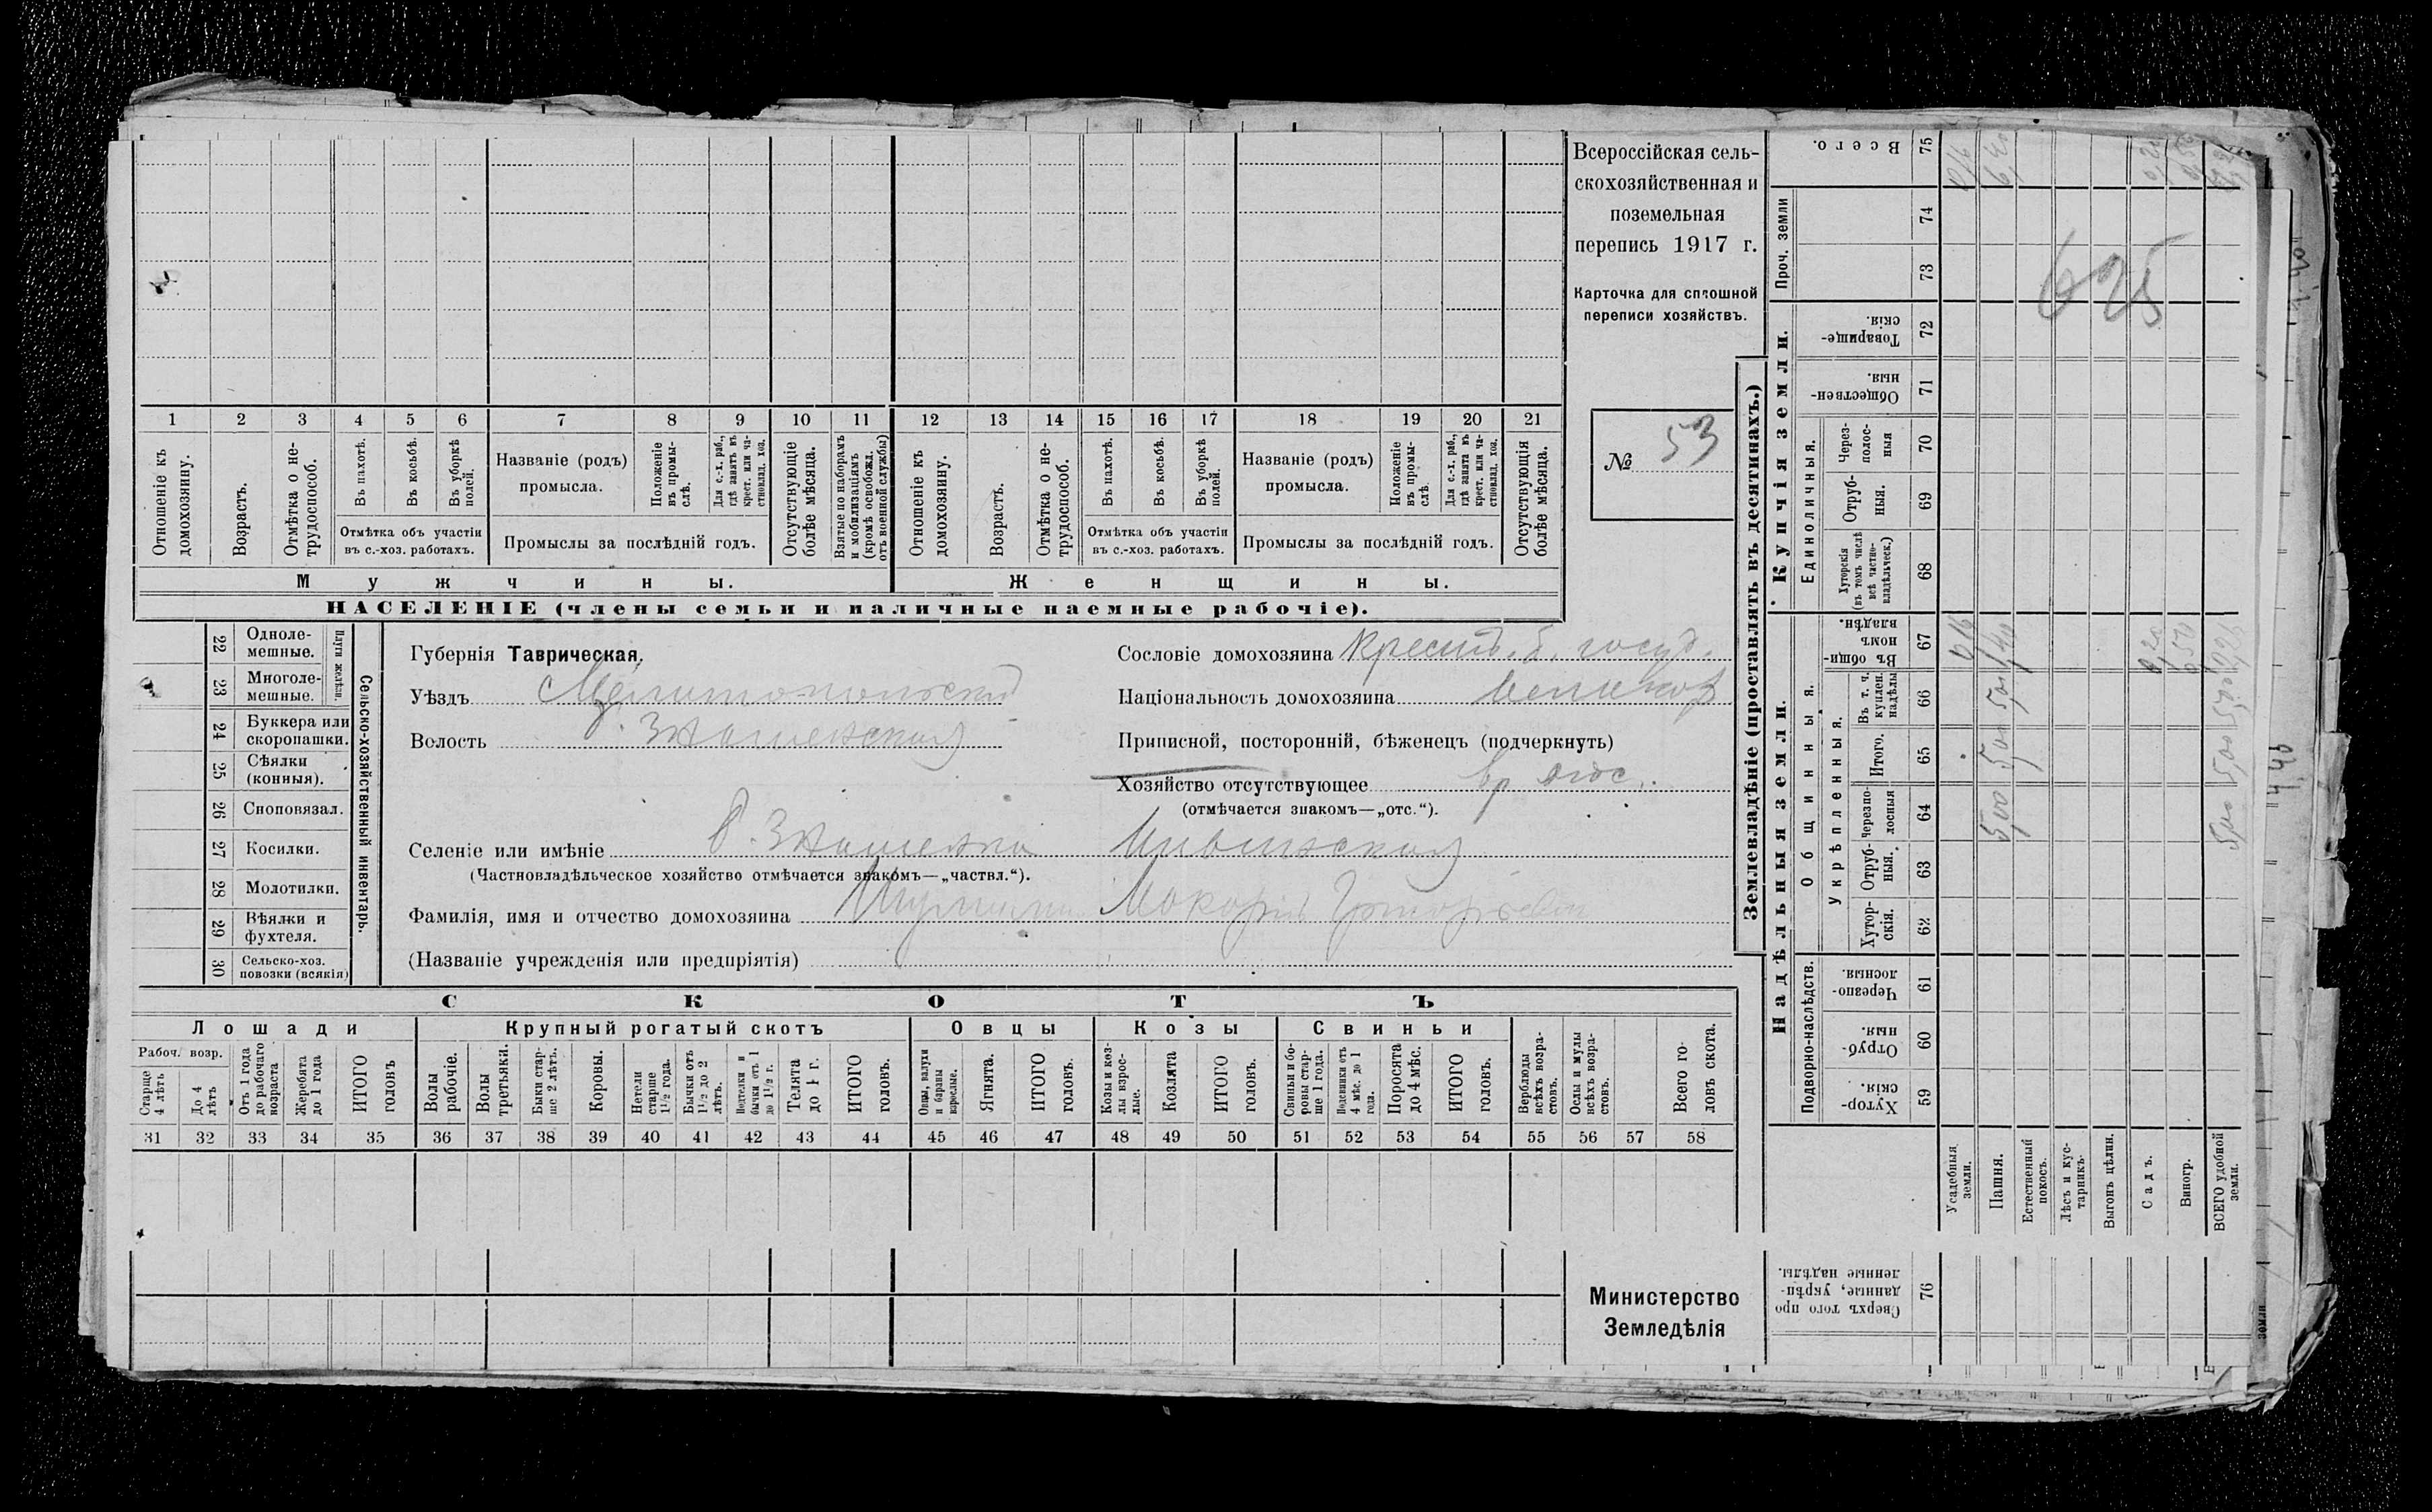 Всероссійская сель-
скохозяйственная и
поземельная
перепись 1917 г.
Карточка для сплошной
переписи хозяйствъ.
№ 53
1 2 3 4 5 6 7 8 9 10 11 12 13 14 15 16 17 18 19 20 21
Отношеніе къ домохозяину.
Возрастъ.
Отмѣтка о не-трудоспособ.
Въ пахотѣ.
Въ косьбѣ.
Въ уборкѣ полей.
Отмѣтка объ участіи
въ с.-хоз. работахъ.
Названіе (родъ)
промысла.
Положеніе въ промы-слѣ.
Для с.-х. раб., гдѣ занятъ въ крест. или ча-стновлад. хоз.
Промыслы за послѣдній годъ.
Отсутствующіе болѣе мѣсяца.
Взятые по наборамъ и мобилизаціямъ (кромѣ освобожд. отъ военной службы)
Отношеніе къ домохозяину.
Возрастъ.
Отмѣтка о не-трудоспособ.
Въ пахотѣ.
Въ косьбѣ.
Въ уборкѣ полей.
Отмѣтка объ участіи
въ с.-хоз. работахъ.
Названіе (родъ)
промысла.
Положеніе въ промы-слѣ.
Для с.-х. раб., гдѣ занята въ крест. или ча-стновлад. хоз.
Промыслы за послѣдній годъ.
Отсутствующія болѣе мѣсяца.
Мужчины.
Женщины.
НАСЕЛЕНІЕ (члены семьи и наличные наемные рабочіе).
Сельско-хозяйственный инвентарь.
Плуги желѣзн.
22 Одноле-мешные.
23 Многоле-мешные.
24 Буккера или скоропашки.
25 Сѣялки (конныя).
26 Сноповязал.
27 Косилки.
28 Молотилки.
29 Вѣялки и фухтеля.
30 Сельско-хоз. повозки (всякія)
Губернія Таврическая.
Уѣздъ Мелитопольскій
Волость Б. Знаменская
Сословіе домохозяина Крест. б. госуд.
Національность домохозяина великор
Приписной, посторонній, бѣженецъ (подчеркнуть)
Хозяйство отсутствующее вр отс.
(отмѣчается знакомъ—„отс.“).
Селеніе или имѣніе Б. Знаменка
(Частновладѣльческое хозяйство отмѣчается знакомъ—„частвл.“).
Фамилія, имя и отчество домохозяина Макарій Григорьевъ
(Названіе учрежденія или предпріятія)
СКОТЪ
Лошади
Крупный рогатый скотъ
Овцы
Козы
Свиньи
Рабоч. возр.
Старще 4 лѣтъ
До 4 лѣтъ
Отъ 1 года до рабочаго возраста
Жеребята до 1 года
ИТОГО головъ
Волы рабочіе.
Волы третьяки.
Быки стар-ше 2 лѣтъ.
Коровы.
Нетели старше 1½ года.
Бычки отъ 1½ до 2 лѣтъ.
Подтелки и бычки отъ 1 до 1½ г.
Телята до 1 г.
ИТОГО головъ.
Овцы, валухи и бараны взрослые.
Ягнята.
ИТОГО головъ.
Козы и коз-лы взрос-лые.
Козлята
ИТОГО головъ.
Свиньи и бо-ровы стар-ше 1 года.
Подсвинки отъ 4 мѣс. до 1 года.
Поросята до 4 мѣс.
ИТОГО головъ.
Верблюды всѣхъ возра-стовъ.
Ослы и мулы всѣхъ возра-стовъ.
Всего го-ловъ скота.
31 32 33 34 35 36 37 38 39 40 41 42 43 44 45 46 47 48 49 50 51 52 53 54 55 56 57 58
Министерство
Земледѣлія
Землевладѣніе (проставлять въ десятинахъ.)
Надѣльныя земли.
Купчія земли.
Проч. земли
Всего.
Подворно-наслѣдств.
Общинныя.
Укрѣпленныя.
Единоличныя.
Хутор-скія. 59
Отруб-ныя. 60
Черезпо-лосныя. 61
Хутор-скія. 62
Отруб-ныя. 63
Черезпо-лосныя 64
Итого. 65
Въ т. ч. куплен. надѣлы 66
Въ общи-номъ владѣн. 67
Хуторскія (въ томъ числѣ всѣ частно-владѣльческ.) 68
Отруб-ныя. 69
Через-полос-ныя 70
Обществен-ныя. 71
Товарище-скія. 72
73
74
75
Сверхъ того про-данные, укрѣп-ленные надѣлы. 76
Усадебныя земли.
Пашня.
Естественный покосъ.
Лѣсъ и кус-тарникъ.
Выгонъ цѣлин.
Садъ.
Виногр.
ВСЕГО удобной земли.
625
440